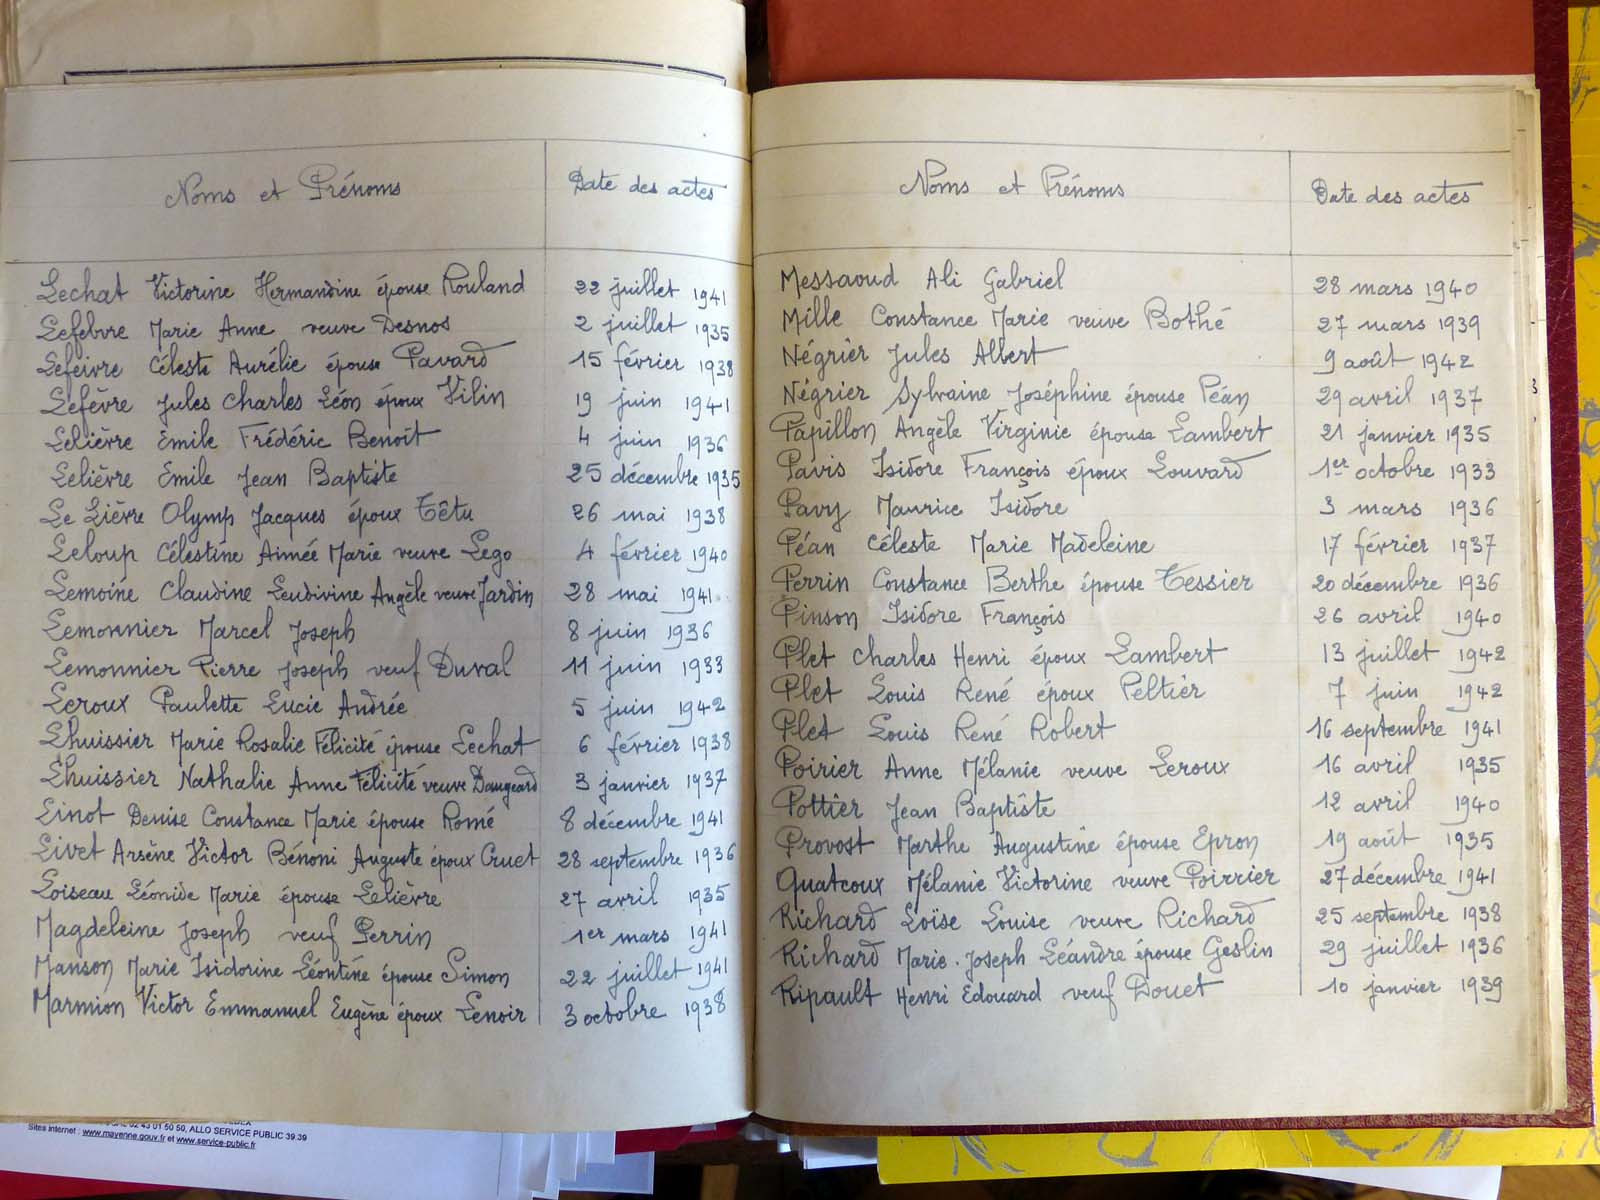 Noms et Prénoms Date des actes
Lechat Victorine Hermandine épouse Rouland 22 juillet 1941
Lefebvre Marie Anne veuve Desnos 2 juillet 1935
Lefeivre Céleste Aurélie épouse Pavard 15 février 1938
Lefèvre Jules Charles Léon époux Vilin 19 juin 1941
Lelièvre Emile Frédéric Benoît 4 juin 1936
Lelièvre Emile Jean Baptiste 25 décembre 1935
Le Lièvre Olymp Jacques époux Têtu 26 mai 1938
Leloup Célestine Aimée Marie veuve Lego 4 février 1940
Lemoine Claudine Leudivine Angèle veuve Jardin 28 mai 1941
Lemonnier Marcel Joseph 8 juin 1936
Lemonnier Pierre Joseph veuf Duval 11 juin 1933
Leroux Paulette Lucie Andrée 5 juin 1942
Lhuissier Marie Rosalie Félicité épouse Lechat 6 février 1938
Lhuissier Nathalie Anne Félicité veuve Daugeard 3 janvier 1937
Linot Denise Constance Marie épouse Romé 8 décembre 1941
Livet Arsène Victor Bénoni Auguste époux Cruet 28 septembre 1936
Loiseau Léonide Marie épouse Lelièvre 27 avril 1935
Magdeleine Joseph veuf Perrin 1er mars 1941
Manson Marie Isidorine Léontine épouse Simon 22 juillet 1941
Marmion Victor Emmanuel Eugène époux Lenoir 3 octobre 1938
Noms et Prénoms Date des actes
Messaoud Ali Gabriel 28 mars 1940
Mille Constance Marie veuve Bothé 27 mars 1939
Négrier Jules Albert 9 août 1942
Négrier Sylvaine Joséphine épouse Péan 29 avril 1937
Papillon Angèle Virginie épouse Lambert 21 janvier 1935
Pavis Isidore François époux Louvard 1er octobre 1933
Pavy Maurice Isidore 3 mars 1936
Péan Céleste Marie Madeleine 17 février 1937
Perrin Constance Berthe épouse Tessier 20 décembre 1936
Pinson Isidore François 26 avril 1940
Plet Charles Henri époux Lambert 13 juillet 1942
Plet Louis René époux Peltier 7 juin 1942
Plet Louis René Robert 16 septembre 1941
Poirier Anne Mélanie veuve Leroux 16 avril 1935
Pottier Jean Baptiste 12 avril 1940
Provost Marthe Augustine épouse Epron 19 août 1935
Quatcoux Mélanie Victorine veuve Poirrier 27 décembre 1941
Richard Loïse Louise veuve Richard 25 septembre 1938
Richard Marie-Joseph Léandre épouse Geslin 29 juillet 1936
Ripault Henri Edouard veuf Douet 10 janvier 1939
02 43 01 50 50, ALLO SERVICE PUBLIC 39.39
Sites internet : www.mayenne.gouv.fr et www.service-public.fr